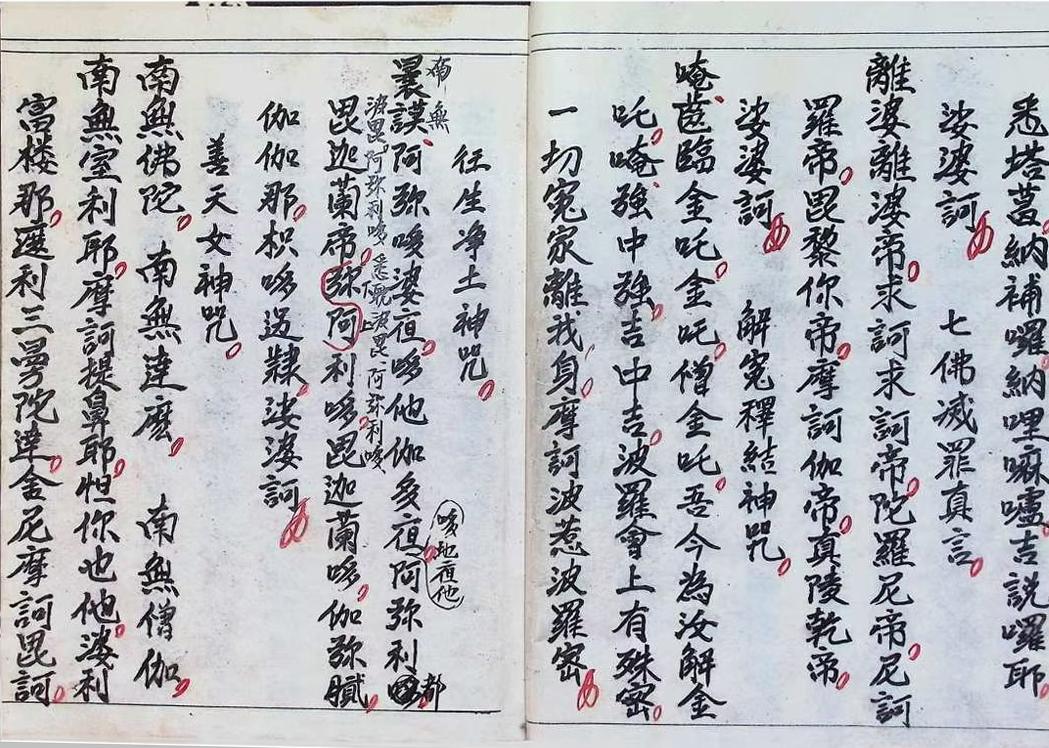 悉塔菖納補囉納哩嘛嚧吉説囉耶
娑婆訶　七佛滅罪真言
離婆離婆帝求訶求訶帝陀羅尼帝尼訶
羅帝毘黎你帝摩訶伽帝真陵乾帝
娑婆訶　解寃釋結神咒
唵莀臨金吒金吒僧金吒吾今為汝解金
吒唵強中強吉中吉波羅會上有殊密
一切寃家離我身摩訶波惹波羅密
往生净土神咒
南無
曩謨阿弥唎婆夜哆他伽多夜阿弥利都
哆地夜他
婆毘阿弥利哆悉耽婆毘阿弥利哆
毘迦蘭帝弥阿利哆毘迦蘭哆伽弥膩
伽伽那枳哆迦隸娑婆訶
善天女神咒
南無佛陀　南無達麽　南無僧伽
南無室利耶摩訶提鼻耶怛你也他婆利
富楼那遮利三曼陀達舍尼摩訶毘訶